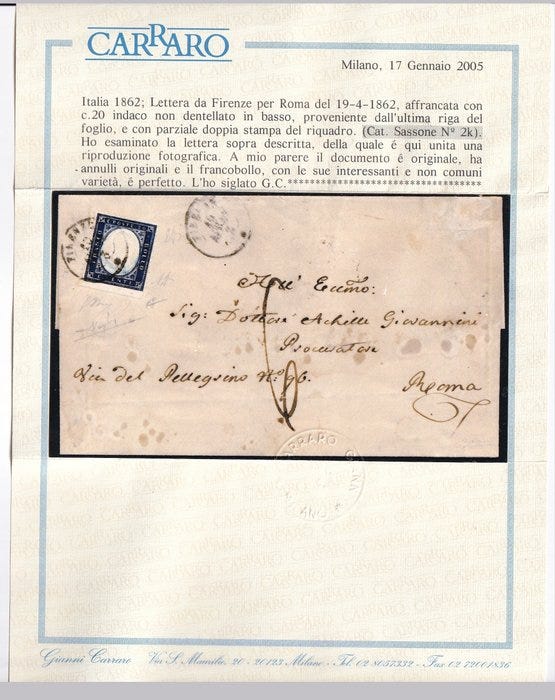 CARRARO
Milano, 17 Gennaio 2005
Italia 1862; Lettera da Firenze per Roma del 19-4-1862, affrancata con
c.20 indaco non dentellato in basso, proveniente dall'ultima riga del
foglio, e con parziale doppia stampa del riquadro. (Cat. Sassone N° 2k).
Ho esaminato la lettera sopra descritta, della quale é qui unita una
riproduzione fotografica. A mio parere il documento é originale, ha
annulli originali e il francobollo, con le sue interessanti e non comuni
varietà, é perfetto. L'ho siglato G.C.************************************
FIRENZE
FRANCO BOLLO
Sig: Dottore Achille Giovannini
Procuratore
Via del Pellegrino N.° 96.
Roma
CARRARO GIANNI
Gianni Carraro Via S. Maurilio, 20 - 20123 Milano - Tel. 02 8057332 - Fax 02 72001836